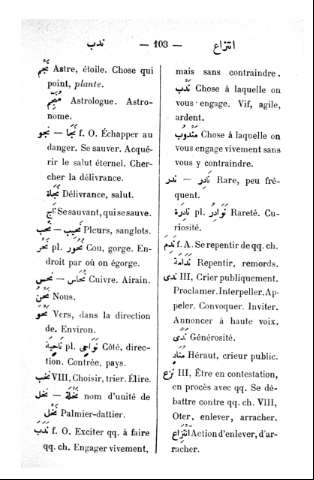 ندب — 103 — انتزاع
نَجْم Astre, étoile. Chose qui
point, plante.
مُنَجِّم Astrologue. Astro-
nome.
نجو — نَجَا f. O. Échapper au
danger. Se sauver. Acqué-
rir le salut éternel. Cher-
cher la délivrance.
نَجَاة Délivrance, salut.
نَاجٍ Se sauvant, qui se sauve.
نحب — نَحِيب Pleurs, sanglots.
نَحْر pl. نُحُور Cou, gorge. En-
droit par où on égorge.
نحس — نُحَاس Cuivre. Airain.
نَحْنُ Nous.
نَحْو Vers, dans la direction
de. Environ.
نَاحِيَة pl. نَوَاحِي Côté, direc-
tion. Contrée, pays.
نخب VIII, Choisir, trier. Élire.
نخل — نَخْلَة nom d'unité de
نَخْل Palmier-dattier.
نَدَبَ f. O. Exciter qq. à faire
qq. ch. Engager vivement,
mais sans contraindre.
نَدْب Chose à laquelle on
vous engage. Vif, agile,
ardent.
مَنْدُوب Chose à laquelle on
vous engage vivement sans
vous y contraindre.
ندر — نَادِر Rare, peu fré-
quent.
نَادِرَة pl. نَوَادِر Rareté. Cu-
riosité.
نَدِمَ f. A. Se repentir de qq. ch.
نَدَامَة Repentir, remords.
ندى III, Crier publiquement.
Proclamer. Interpeller. Ap-
peler. Convoquer. Inviter.
Annoncer à haute voix.
نَدًى Générosité.
مُنَادٍ Héraut, crieur public.
نزع III, Être en contestation,
en procès avec qq. Se dé-
battre contre qq. ch. VIII,
Oter, enlever, arracher.
اِنْتِزَاع Action d'enlever, d'ar-
racher.